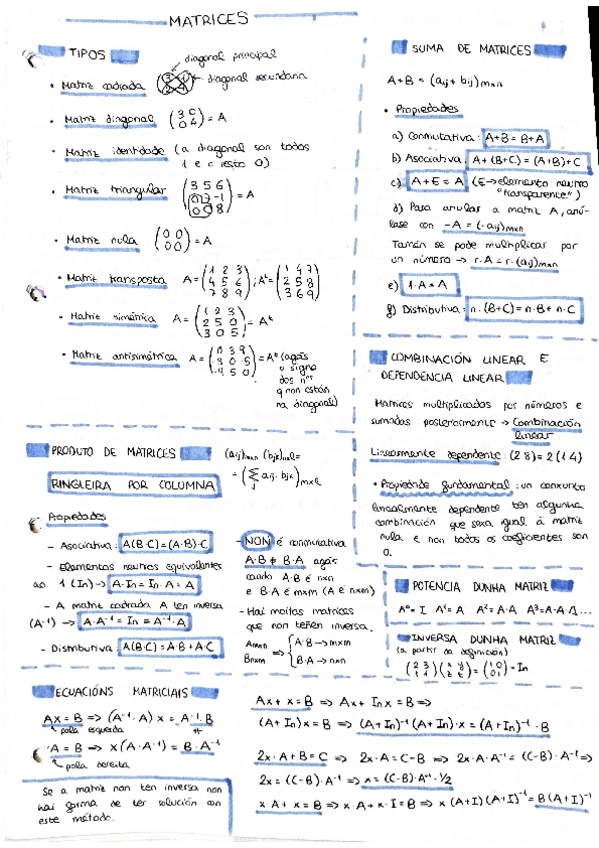 MATRICES
TIPOS
diagonal principal
diagonal secundaria
• Matriz cadrada
• Matriz diagonal (3 0 / 0 4) = A
• Matriz identidade (a diagonal son todos
1 e o resto 0)
• Matriz triangular (3 5 6 / 0 7 -1 / 0 0 8) = A
• Matriz nula (0 0 / 0 0) = A
• Matriz transposta A = (1 2 3 / 4 5 6 / 7 8 9) ; Aᵗ = (1 4 7 / 2 5 8 / 3 6 9)
• Matriz simétrica A = (1 2 3 / 2 5 0 / 3 0 5) = Aᵗ
• Matriz antisimétrica A = (0 3 9 / -3 0 -5 / -9 5 0) = Aᵗ (agás
o signo
dos nᵒˢ
q non están
na diagonal)
SUMA DE MATRICES
A+B = (aij + bij)mxn
• Propiedades
a) Conmutativa: A+B = B+A
b) Asociativa: A+(B+C) = (A+B)+C
c) A+E = A (E→elemento neutro
"transparente")
d) Para anular a matriz A, anú-
lase con -A = (-aij)mxn
Tamén se pode multiplicar por
un número → r·A = r·(aij)mxn
e) 1·A = A
f) Distributiva: n·(B+C) = n·B + n·C
COMBINACIÓN LINEAR E
DEPENDENCIA LINEAR
Matrices multiplicadas por números e
sumadas posteriormente → Combinación
linear
Linearmente dependente: (2 8) = 2(1 4)
• Propiedade fundamental: un conxunto
linealmente dependente ten algunha
combinación que sexa igual á matriz
nula e non todos os coeficientes son
0.
PRODUTO DE MATRICES (aij)mxn (bjk)nxl =
= (∑j aij·bjk)mxl
RINGLEIRA POR COLUMNA
Propiedades
- Asociativa: A(B·C) = (A·B)·C
- Elementos neutros equivalentes
ao 1 (In) → A·In = In·A = A
- A matriz cadrada A ten inversa
(A⁻¹) → A·A⁻¹ = In = A⁻¹·A
- Distributiva: A(B+C) = A·B + A·C
- NON é conmutativa
A·B ≠ B·A agás
cando A·B é nxn
e B·A é mxm (A é nxm)
- Hai moitas matrices
que non teñen inversa.
Amxn
Bnxm ⇒ { A·B → mxm
B·A → nxn
POTENCIA DUNHA MATRIZ
A⁰ = I A¹ = A A² = A·A A³ = A·A·A ...
INVERSA DUNHA MATRIZ
(a partir da definición)
(2 3 / 1 4) (x y / z t) = (1 0 / 0 1) = In
ECUACIÓNS MATRICIAIS
AX = B ⇒ (A⁻¹·A) x = A⁻¹·B
pola esquerda
·A = B ⇒ x(A·A⁻¹) = B·A⁻¹
pola dereita
Se a matriz non ten inversa non
hai forma de ter solución con
este método.
Ax + x = B ⇒ Ax + In x = B ⇒
(A + In) x = B ⇒ (A + In)⁻¹ (A + In)·x = (A + In)⁻¹·B
2x·A + B = C ⇒ 2x·A = C-B ⇒ 2x·A·A⁻¹ = (C-B)·A⁻¹ ⇒
2x = (C-B)·A⁻¹ ⇒ x = (C-B)·A⁻¹·1/2
x·A + x = B ⇒ x·A + x·I = B ⇒ x(A+I)(A+I)⁻¹ = B(A+I)⁻¹